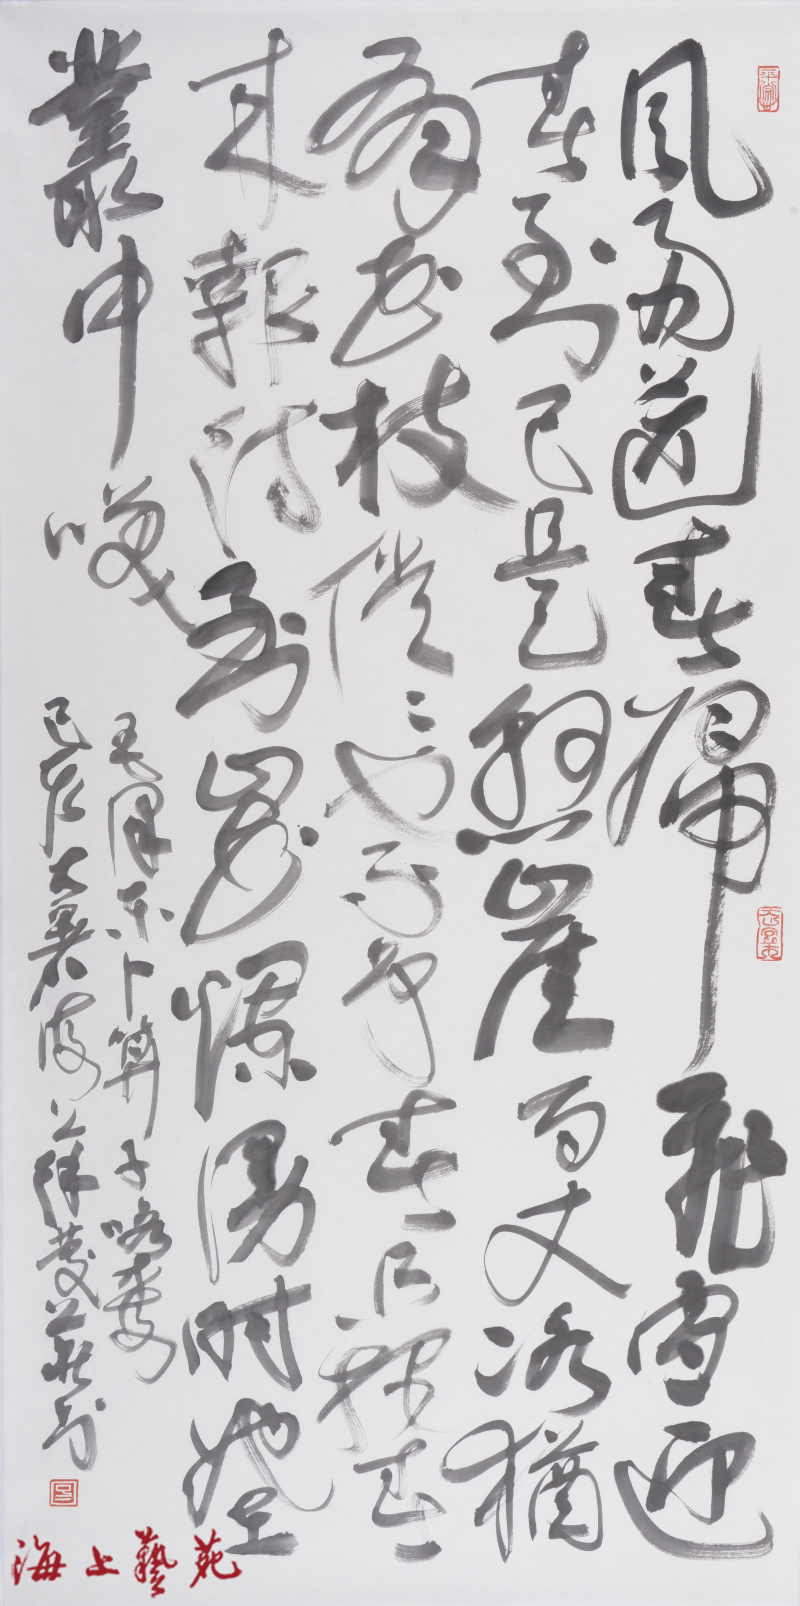 風雨送春歸飛雪迎
春到已是懸崖百丈冰猶
有花枝俏〻也不爭春只把春
来報待到山花爛漫時她在
叢中笑
毛澤东卜算子咏梅
己亥大暑海上
海上藝苑